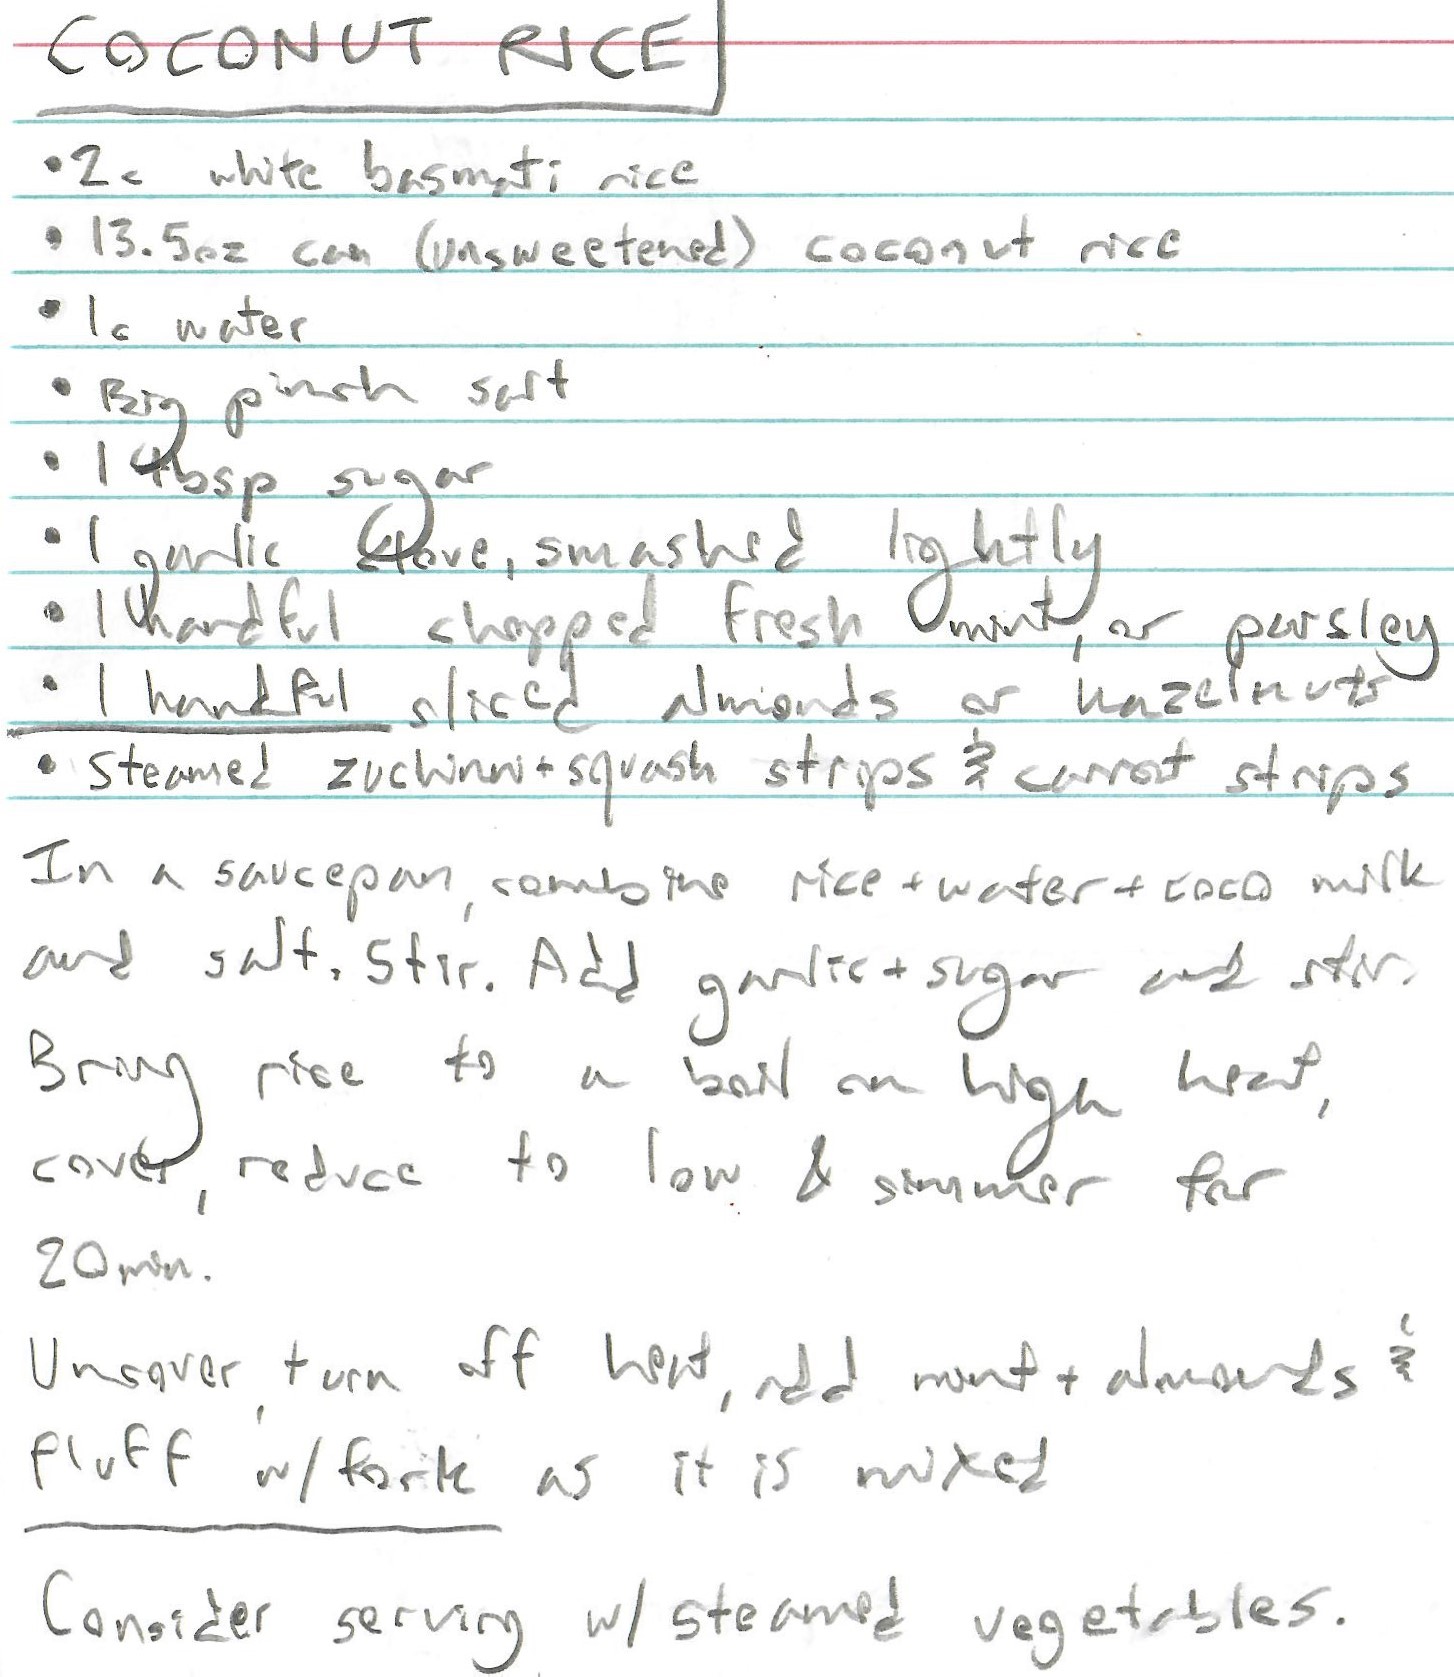 COCONUT RICE
• 2c white basmati rice
• 13.5oz can (unsweetened) coconut rice
• 1c water
• Big pinch salt
• 1 tbsp sugar
• 1 garlic clove, smashed lightly
• 1 handful chopped fresh mint, or parsley
• 1 handful sliced almonds or hazelnuts
• Steamed zuchinni + squash strips & carrot strips
In a saucepan, combine rice + water + coco milk
and salt. Stir. Add garlic + sugar and stir.
Bring rice to a boil on high heat,
cover, reduce to low & simmer for
20min.
Uncover, turn off heat, add mint + almonds &
fluff w/ fork as it is mixed
Consider serving w/ steamed vegetables.